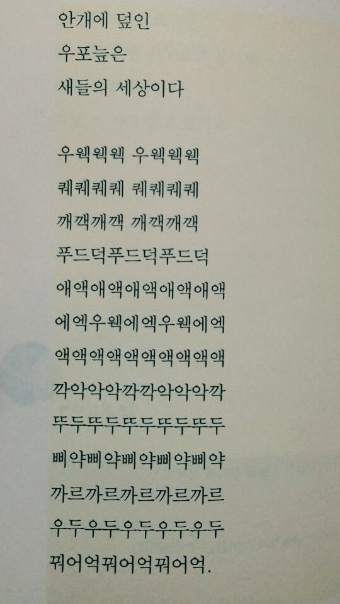 안개에 덮인
우포늪은
새들의 세상이다
우웩웩웩 우웩웩웩
퀘퀘퀘퀘 퀘퀘퀘퀘
깨깩깨깩 깨깩깨깩
푸드덕푸드덕푸드덕
애액애액애액애액애액
에엑우웩에엑우웩에엑
액액액액액액액액액액
깍악악악깍깍악악악깍
뚜두뚜두뚜두뚜두뚜두
삐약삐약삐약삐약삐약
까르까르까르까르까르
우두우두우두우두우두
꿔어억꿔어억꿔어억.